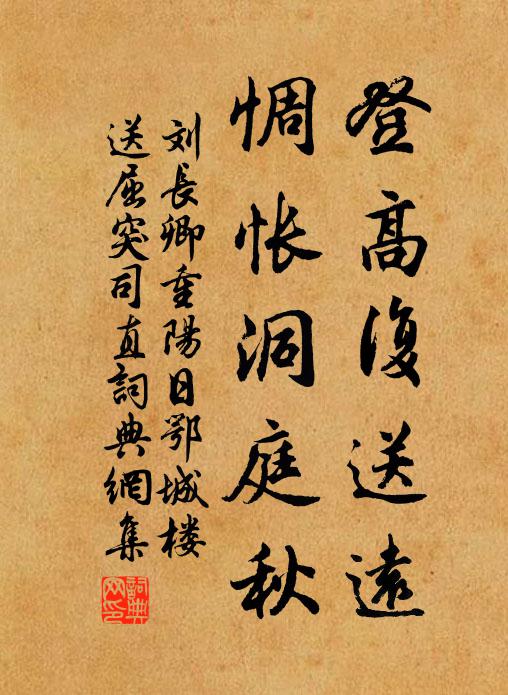 登高復送遠
惆怅洞庭秋
刘長卿重陽日鄂城楼
送屈突司直詞典網集
詞典网印